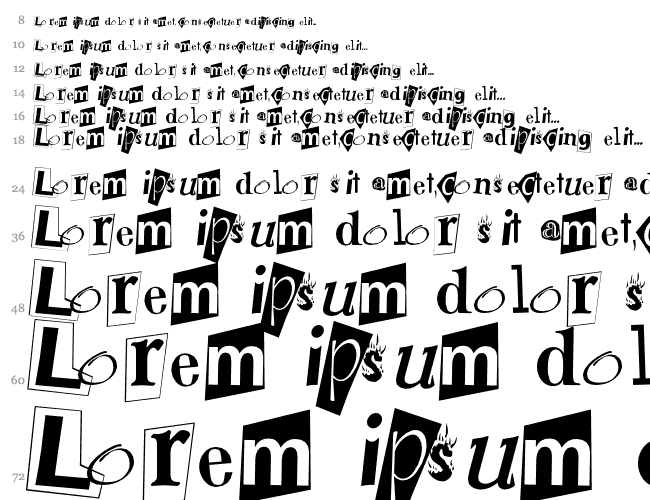 8 Lorem ipsum dolor sit amet, consectetuer adipiscing elit...
10 Lorem ipsum dolor sit amet, consectetuer adipiscing elit...
12 Lorem ipsum dolor sit amet, consectetuer adipiscing elit...
14 Lorem ipsum dolor sit amet, consectetuer adipiscing elit...
16 Lorem ipsum dolor sit amet, consectetuer adipiscing elit...
18 Lorem ipsum dolor sit amet, consectetuer adipiscing elit...
24 Lorem ipsum dolor sit amet, consectetuer ad
36 Lorem ipsum dolor sit amet, c
48 Lorem ipsum dolor s
60 Lorem ipsum dol
72 Lorem ipsum